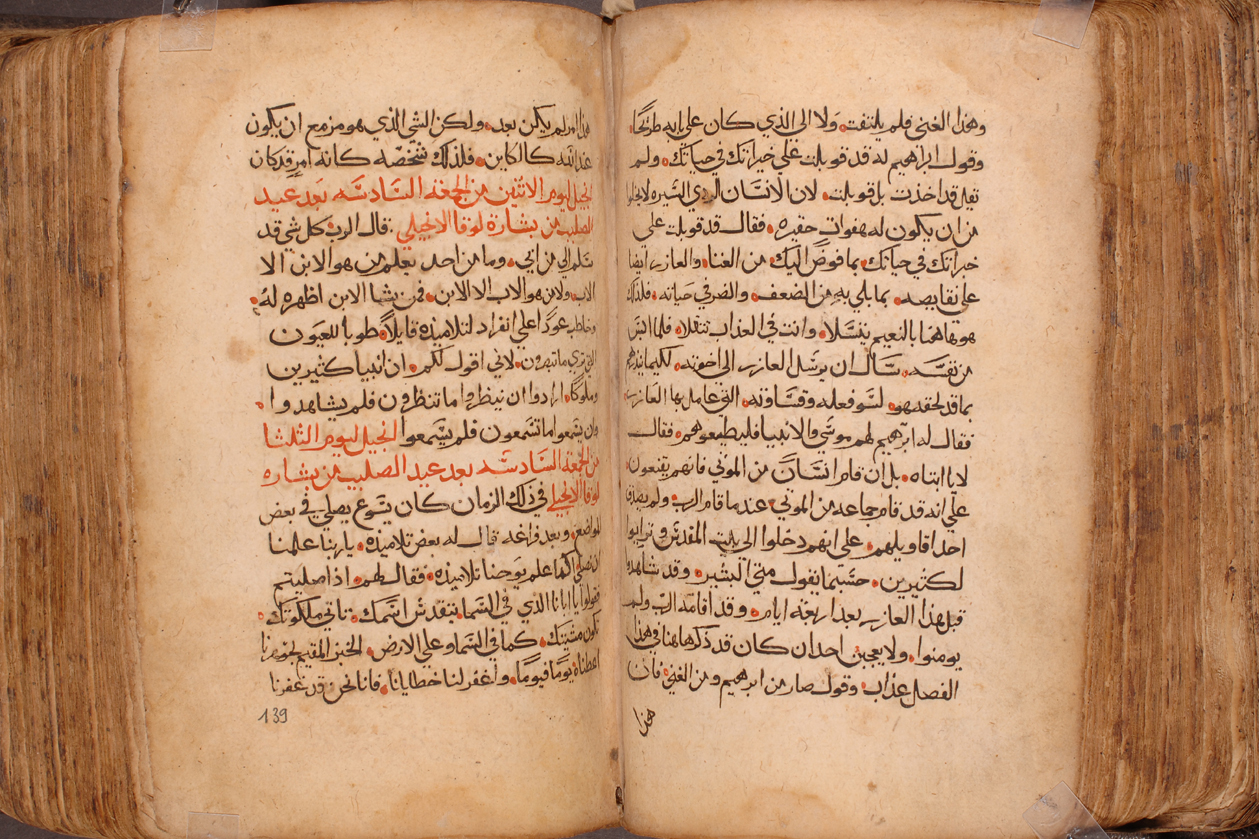 وهذا الغني فلم يلتفت، ولا الى الذي كان على بابه طريحًا،
وقول ابراهيم له قد قوبلت على خيراتك في حياتك، ولم
يقل قد اخذت بل قوبلت، لان الانسان الردي السيره لا يخلوا
من ان يكون له هفوات حقيره، فقال قد قوبلت على
خيراتك في حياتك، بما فوض اليك من الغنا، والعازر ايضا
على نقايصه، بما بلي به من الضعف، والضر في حياته، فلذلك
هو هاهنا بالنعيم يتسلا، وانت في العذاب تتقلا، فلما ايس
من نفسه، سال ان يرسل العازر الى اخوته، لكيما ينذرهم
بما قد لحقه هو، لسو فعله وقساوته، التي عامل بها العازر،
فقال له ابرهيم لهم موسى والانبيا فليطيعوهم، فقال
لا يا ابتاه، بل ان قام انسان من الموتى فانهم يقنعون،
على انه قد قام جماعه من الموتى، عندما قام الرب، ولم يصدق
احد اقاويلهم، على انهم دخلوا الى بيت المقدس وترايوا
لكثيرين، حسبما يقول متى البشير، وقد شاهدوا
قبل هذا العازر بعد اربعة ايام، وقد اقامه الرب ولم
يومنوا، ولا يعجبن احد ان كان قد ذكر هاهنا في هذا
الفصل عذاب، وقول صار من ابرهيم ومن الغني، فان
هذا
هذا امر لم يكن بعد، ولكن الشي الذي هو مزمع ان يكون
عند الله كالكاين، فلذلك شخصه كانه امر قد كان
انجيل ليوم الاثنين من الجمعة السادسه بعد عيد
الصليب من بشارة لوقا الانجيلي، قال الرب كل شي قد
سلم الي من ابي، وما من احد يعلم من هو الابن الا
الاب، ولا من هو الاب الا الابن، فمن يشا الابن اظهره له،
وخاطب عودًا على انفراد لتلاميذه قايلاً، طوبا للعيون
التي ترى ما تبصرون، لاني اقول لكم، ان انبيا كثيرين
وملوكًا، ارادوا ان ينظروا ما تنظرون فلم يشاهدوا،
وان يسمعوا ما تسمعون فلم يسمعوا انجيل ليوم الثلثا
من الجمعة السادسه بعد عيد الصليب من بشاره
لوقا الانجيلي في ذلك الزمان كان يسوع يصلي في بعض
المواضع، وبعد فراغه قال له بعض تلاميذه، يا ربنا علمنا
ان نصلي، كما علم يوحنا تلاميذه، فقال لهم، اذا صليتم
فقولوا يا ابانا الذي في السما، يتقدس اسمك، تاتي ملكوتك،
تكون مشيتك، كما في السما وعلى الارض، الخبز المقيم لجوهرنا
اعطناه يومًا فيومًا، واغفر لنا خطايانا، فانا نحن قد غفرنا
139